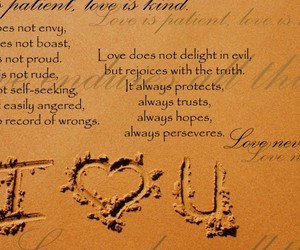 patient, love is kind.
Love is patient, love is
oes not envy,
oes not boast,
s not proud.
is not rude,
not self-seeking,
easily angered,
record of wrongs.
Love does not delight in evil,
but rejoices with the truth.
It always protects,
always trusts,
always hopes,
always perseveres.
Love nev
Love ne
I ♥ U